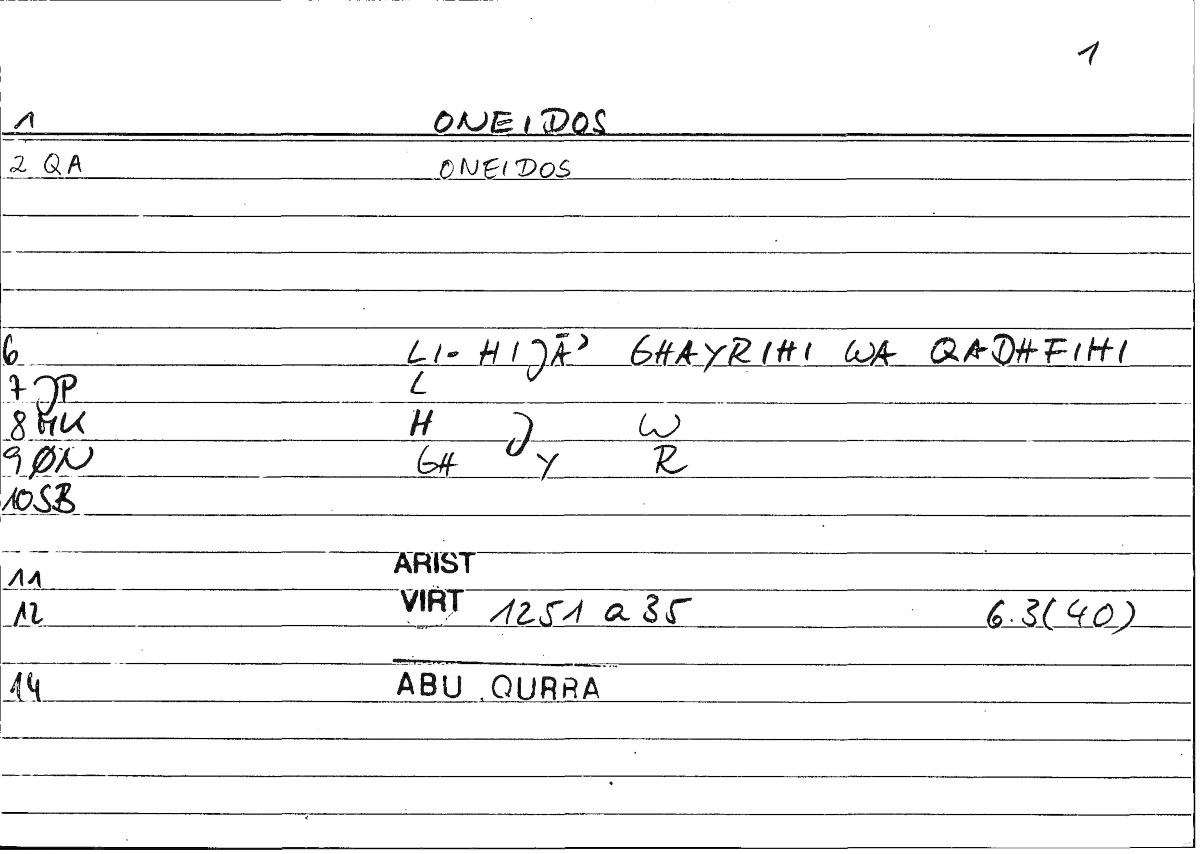 1
1 ONEIDOS
2 QA ONEIDOS
6 LI- HIJĀʾ GHAYRIHI WA QADHFIHI
7 JP L
8 HK H J W
9 ØN GH Y R
10 SB
ARIST
11
12 VIRT 1251 a 35 6.3(40)
14 ABU QURRA